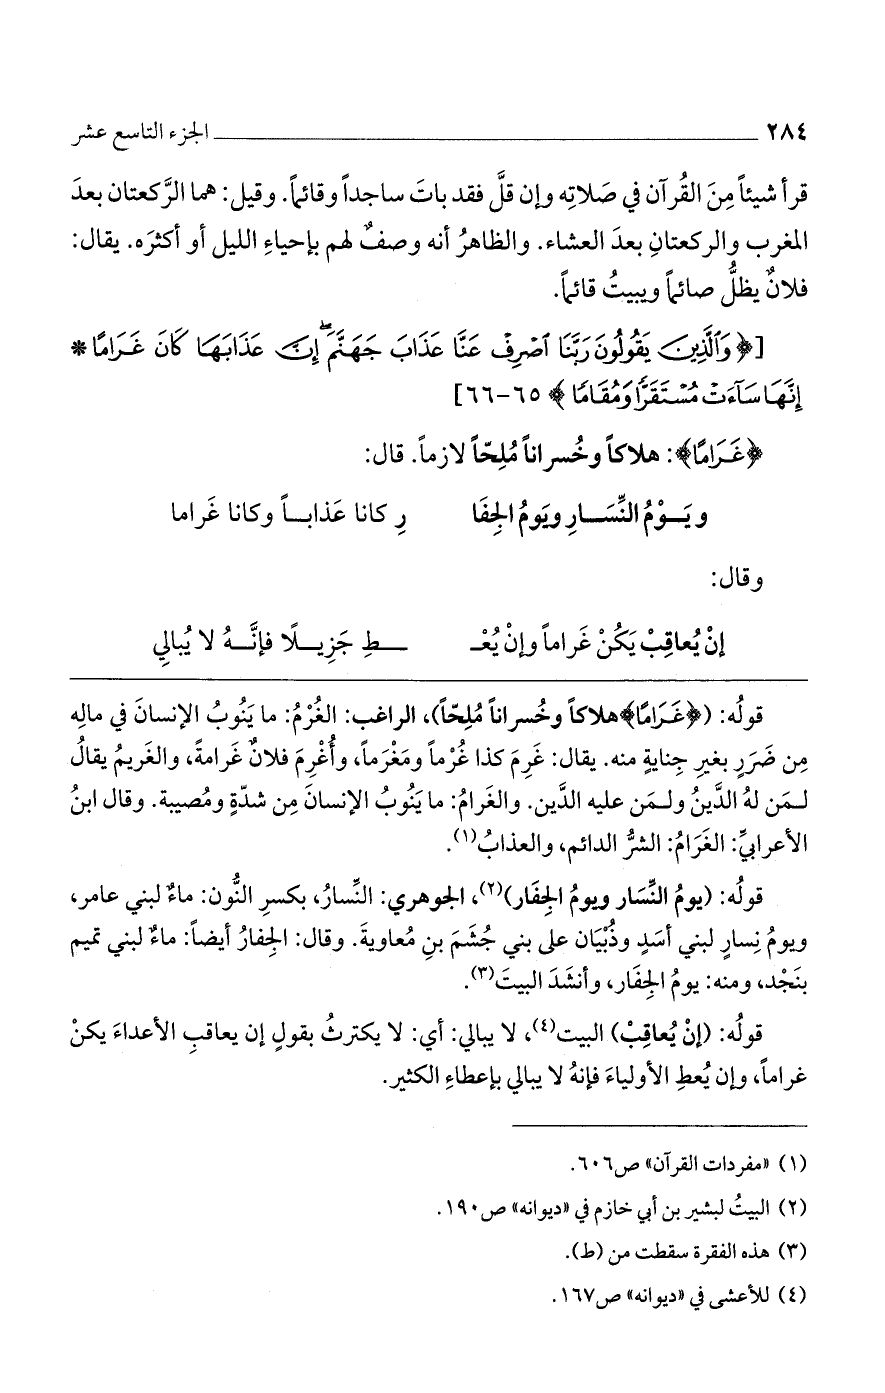 ٢٨٤ الجزء التاسع عشر
قرأ شيئاً مِنَ القُرآن في صَلاتِه وإن قلَّ فقد باتَ ساجداً وقائماً. وقيل: هما الرَّكعتان بعدَ
المغرب والركعتانِ بعدَ العشاء. والظاهرُ أنه وصفٌ لهم بإحياءِ الليل أو أكثرَه. يقال:
فلانٌ يظلُّ صائماً ويبيتُ قائماً.
[﴿وَٱلَّذِينَ يَقُولُونَ رَبَّنَا ٱصْرِفْ عَنَّا عَذَابَ جَهَنَّمَ ۖ إِنَّ عَذَابَهَا كَانَ غَرَامًا *
إِنَّهَا سَآءَتْ مُسْتَقَرًّا وَمُقَامًا﴾ ٦٥-٦٦]
﴿غَرَامًا﴾: هلاكاً وخُسراناً مُلِحّاً لازماً. قال:
ويَـوْمُ النِّسَـارِ ويَومُ الجِفَا رِ كانا عَذابـاً وكانا غَراما
وقال:
إنْ يُعاقِبْ يَكُنْ غَراماً وإنْ يُعْـ ـطِ جَزِيـلًا فإنَّـهُ لا يُبالِي
قولُه: (﴿غَرَامًا﴾ هلاكاً وخُسراناً مُلِحّاً)، الراغب: الغُرْمُ: ما يَنُوبُ الإنسانَ في مالِه
مِن ضَرَرٍ بغيرِ جِنايةٍ منه. يقال: غَرِمَ كذا غُرْماً ومَغْرَماً، وأُغْرِمَ فلانٌ غَرامةً، والغَريمُ يقالُ
لـمَن لهُ الدَّينُ ولـمَن عليه الدَّين. والغَرامُ: ما يَنُوبُ الإنسانَ مِن شدّةٍ ومُصيبة. وقال ابنُ
الأعرابيِّ: الغَرَامُ: الشرُّ الدائم، والعذابُ(١).
قولُه: (يومُ النِّسَار ويومُ الجِفَار)(٢)، الجوهري: النِّسارُ، بكسرِ النُّون: ماءٌ لبني عامر،
ويومُ نِسارٍ لبني أسَدٍ وذُبْيَان على بني جُشَمَ بنِ مُعاويةَ. وقال: الجِفارُ أيضاً: ماءٌ لبني تميم
بنَجْد، ومنه: يومُ الجِفَار، وأنشَدَ البيتَ(٣).
قولُه: (إنْ يُعاقِبْ) البيت(٤)، لا يبالي: أي: لا يكترثُ بقولٍ إن يعاقبِ الأعداءَ يكنْ
غراماً، وإن يُعطِ الأولياءَ فإنهُ لا يبالي بإعطاءِ الكثير.
(١) «مفردات القرآن» ص٦٠٦.
(٢) البيتُ لبشير بن أبي خازم في «ديوانه» ص١٩٠.
(٣) هذه الفقرة سقطت من (ط).
(٤) للأعشى في «ديوانه» ص١٦٧.